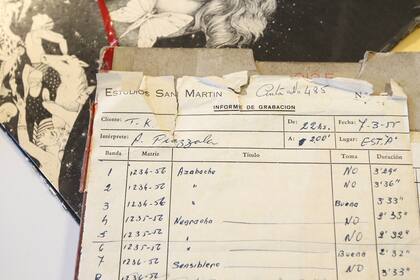 ESTUDIOS SAN MARTIN 485 N°
INFORME DE GRABACION
Cliente: T.K De: 22hs. Fecha: 7-3-55
Intérprete: A. Piazzola A: 200' Lugar: EST."A"
Banda Matriz Título Toma Duración
1 1234-56 Azabache NO 3'29"
2 1234-56 " NO 3'36"
3 1234-56 " Buena 3'33"
4 1235-56 Negracha NO 2'35"
5 1235-56 " NO 2'32"
6 1235-56 " Buena 2'32"
7 1236-56 Sensiblero NO
8 1236-56 NO